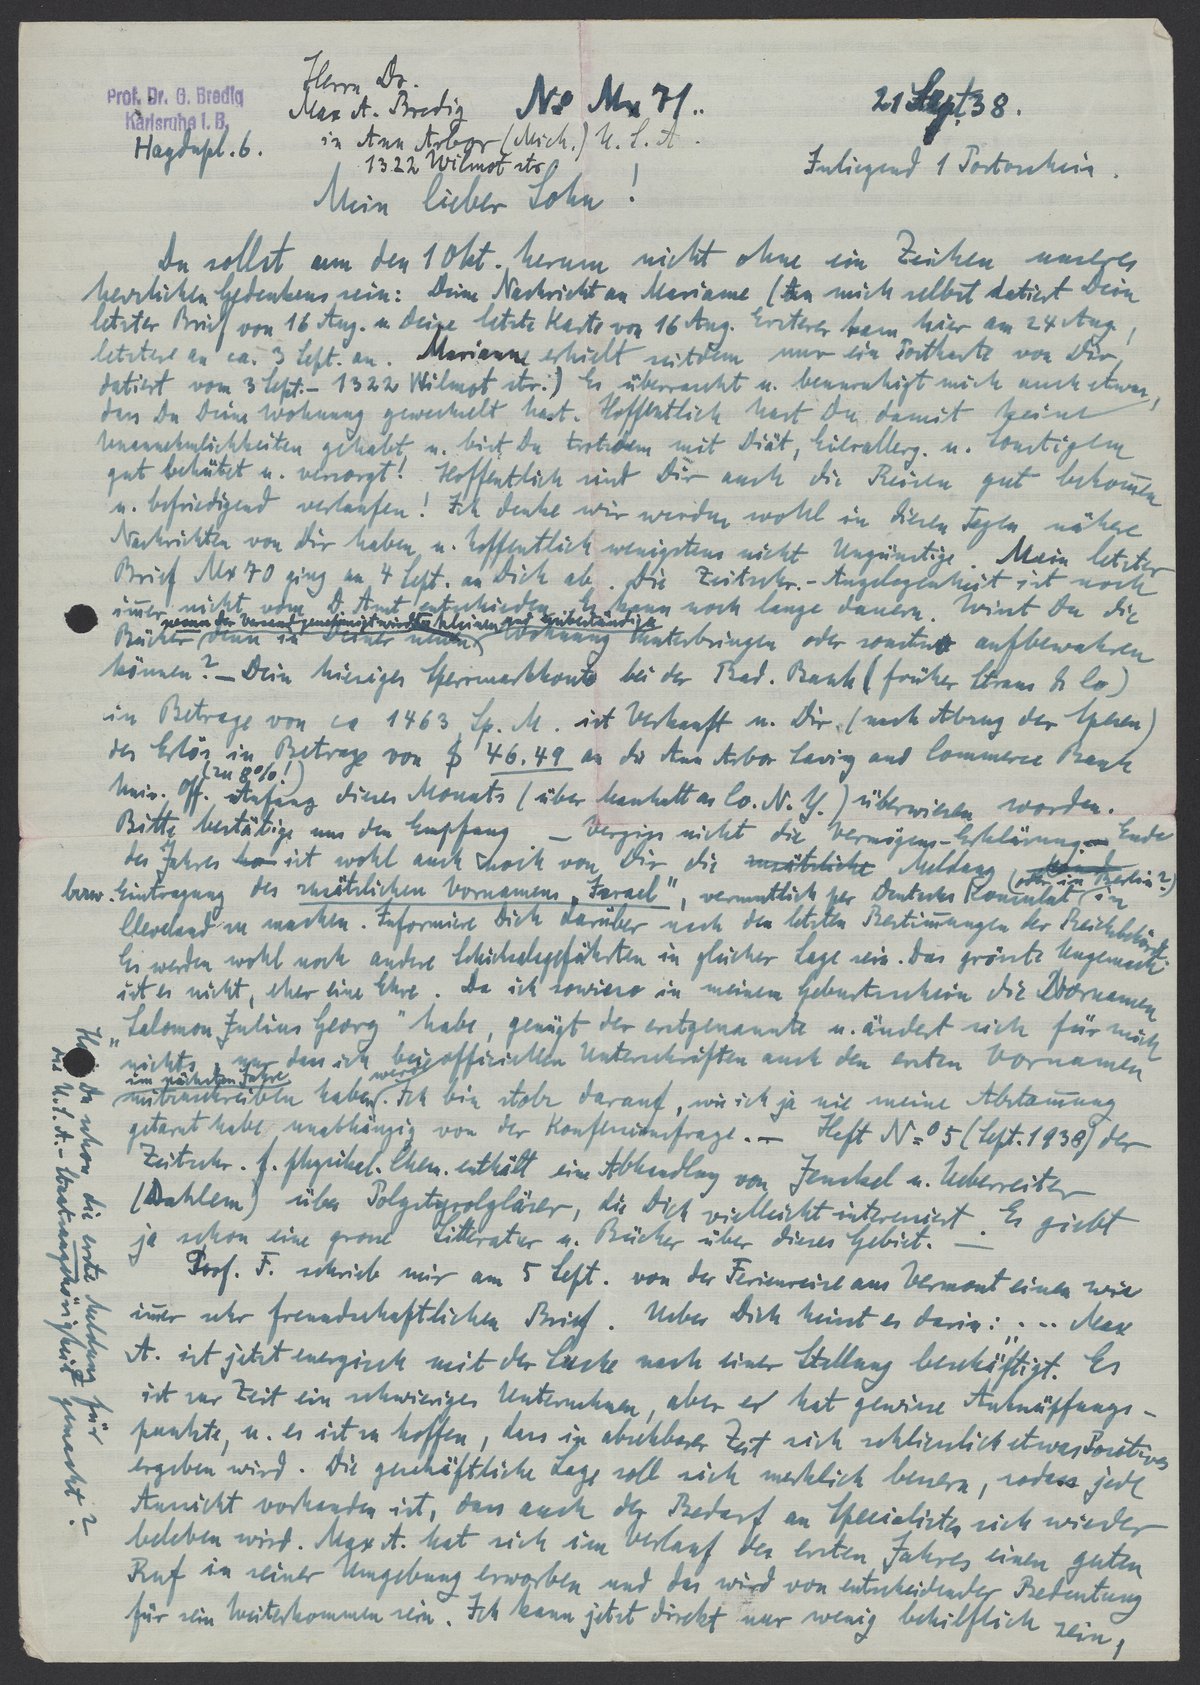 Prof. Dr. G. Bredig
Karlsruhe i. B.
Haydnpl. 6.
Herrn Dr.
Max A. Bredig
in Ann Arbor (Mich.) U. S. A.
1322 Wilmot str.
No Mx 71..
21 Sept 38.
Inliegend 1 Portoschein.
Mein lieber Sohn!
Du sollst um den 1 Okt. herum nicht ohne ein Zeichen unseres
herzlichen Gedenkens sein: Deine Nachricht an Marianne (An mich selbst datiert Dein
letzter Brief von 16 Aug. u. Deine letzte Karte von 16 Aug. Ersterer kam hier am 24 Aug.,
letztere an ca. 3 Sept. an. Marianne erhielt seitdem nur ein Postkarte von Dir,
datiert vom 3 Sept. - 1322 Wilmot str.) Es überrascht u. beunruhigt mich auch etwas,
dass Du Deine Wohnung gewechselt hast. Hoffentlich hast Du damit keine
Unannehmlichkeiten gehabt, u. bist Du trotzdem mit Diät, Eierallerg. u. sonstigem
gut behütet u. versorgt! Hoffentlich sind Dir auch die Reisen gut bekommen
u. befriedigend verlaufen! Ich denke wir werden wohl in diesen Tagen nähere
Nachrichten von Dir haben, u. hoffentlich wenigstens nicht Ungünstige. Mein letzter
Brief Mx 70 ging an 4 Sept. an Dich ab. Die Zeitschr.-Angelegenheit ist noch
immer nicht vom D. Amt entschieden. Es kann noch lange dauern. Wirst Du die
wenn der Versand genehmigt wird
Bücher denn in Deiner neuen kleinen Wohnung unterbringen oder sonstwo aufbewahren
können? - Dein hiesiges Sperrmarkkonto bei der Bad. Bank (früher Straus & Co)
in Betrage von ca 1463 Sp. M. ist Verkauft u. Dir (nach Abzug der Spesen)
der Erlös in Betrage von $ 46.49 an die Ann Arbor Saving and Commerce Bank
(zu 8%!)
Univ. Off. Anfang dieses Monats (über Manhattan Co. N. Y.) überwiesen worden.
Bitte bestätige uns den Empfang - Vergiss nicht die Vermögens-Erklärung. Ende
des Jahres ist wohl auch noch von Dir die Meldung (oder in Berlin?)
bezw. Eintragung des zusätzlichen Vornamens "Israel", vermutlich per Deutsches Consulat in
Cleveland zu machen. Informiere Dich darüber nach den letzten Bestimmungen der Reichsbehörde.
Es werden wohl noch andere Schicksalsgefährten in gleicher Lage sein. Das grösste Ungemach
ist es nicht, eher eine Ehre. Da ich sowieso in meinem Geburtsschein die Vornamen
"Salomon Julius Georg" habe, genügt der erstgenannte u. ändert sich für mich
nichts, nur dass ich bei officiellen Unterschriften auch den ersten Vornamen
im nächsten Jahre
mitzuschreiben haben werde. Ich bin stolz darauf, wie ich ja nie meine Abstammung
getarnt habe unabhängig von der Konfessionsfrage. - Heft No 5 (Sept. 1938) der
Zeitschr. f. physikal. Chem. enthält eine Abhandlung von Jenckel u. Ueberreiter
(Dahlem) über Polystyrolgläser, die Dich vielleicht interessiert. Es giebt
ja schon eine grosse Litteratur u. Bücher über dieses Gebiet. -
Prof. F. schrieb mir am 5 Sept. von der Ferienreise aus Vermont einen wie
immer sehr freundschaftlichen Brief. Ueber Dich heisst es darin: "... Max
A. ist jetzt energisch mit der Suche nach einer Stellung beschäftigt. Es
ist zur Zeit ein schwieriges Unternehmen, aber er hat gewisse Anknüpfungs-
punkte, u. es ist zu hoffen, dass in absehbarer Zeit sich schliesslich etwas Positives
ergeben wird. Die geschäftliche Lage soll sich merklich bessern, sodass jede
Aussicht vorhanden ist, dass auch der Bedarf an Specialisten sich wieder
beleben wird. Max A. hat sich im Verlauf des ersten Jahres einen guten
Ruf in seiner Umgebung erworben und das wird von entscheidender Bedeutung
für sein Weiterkommen sein. Ich kann jetzt direkt nur wenig behilflich sein,
Hast Du schon die erste Meldung für
die U.S.A.-Staatsangehörigkeit gemacht?